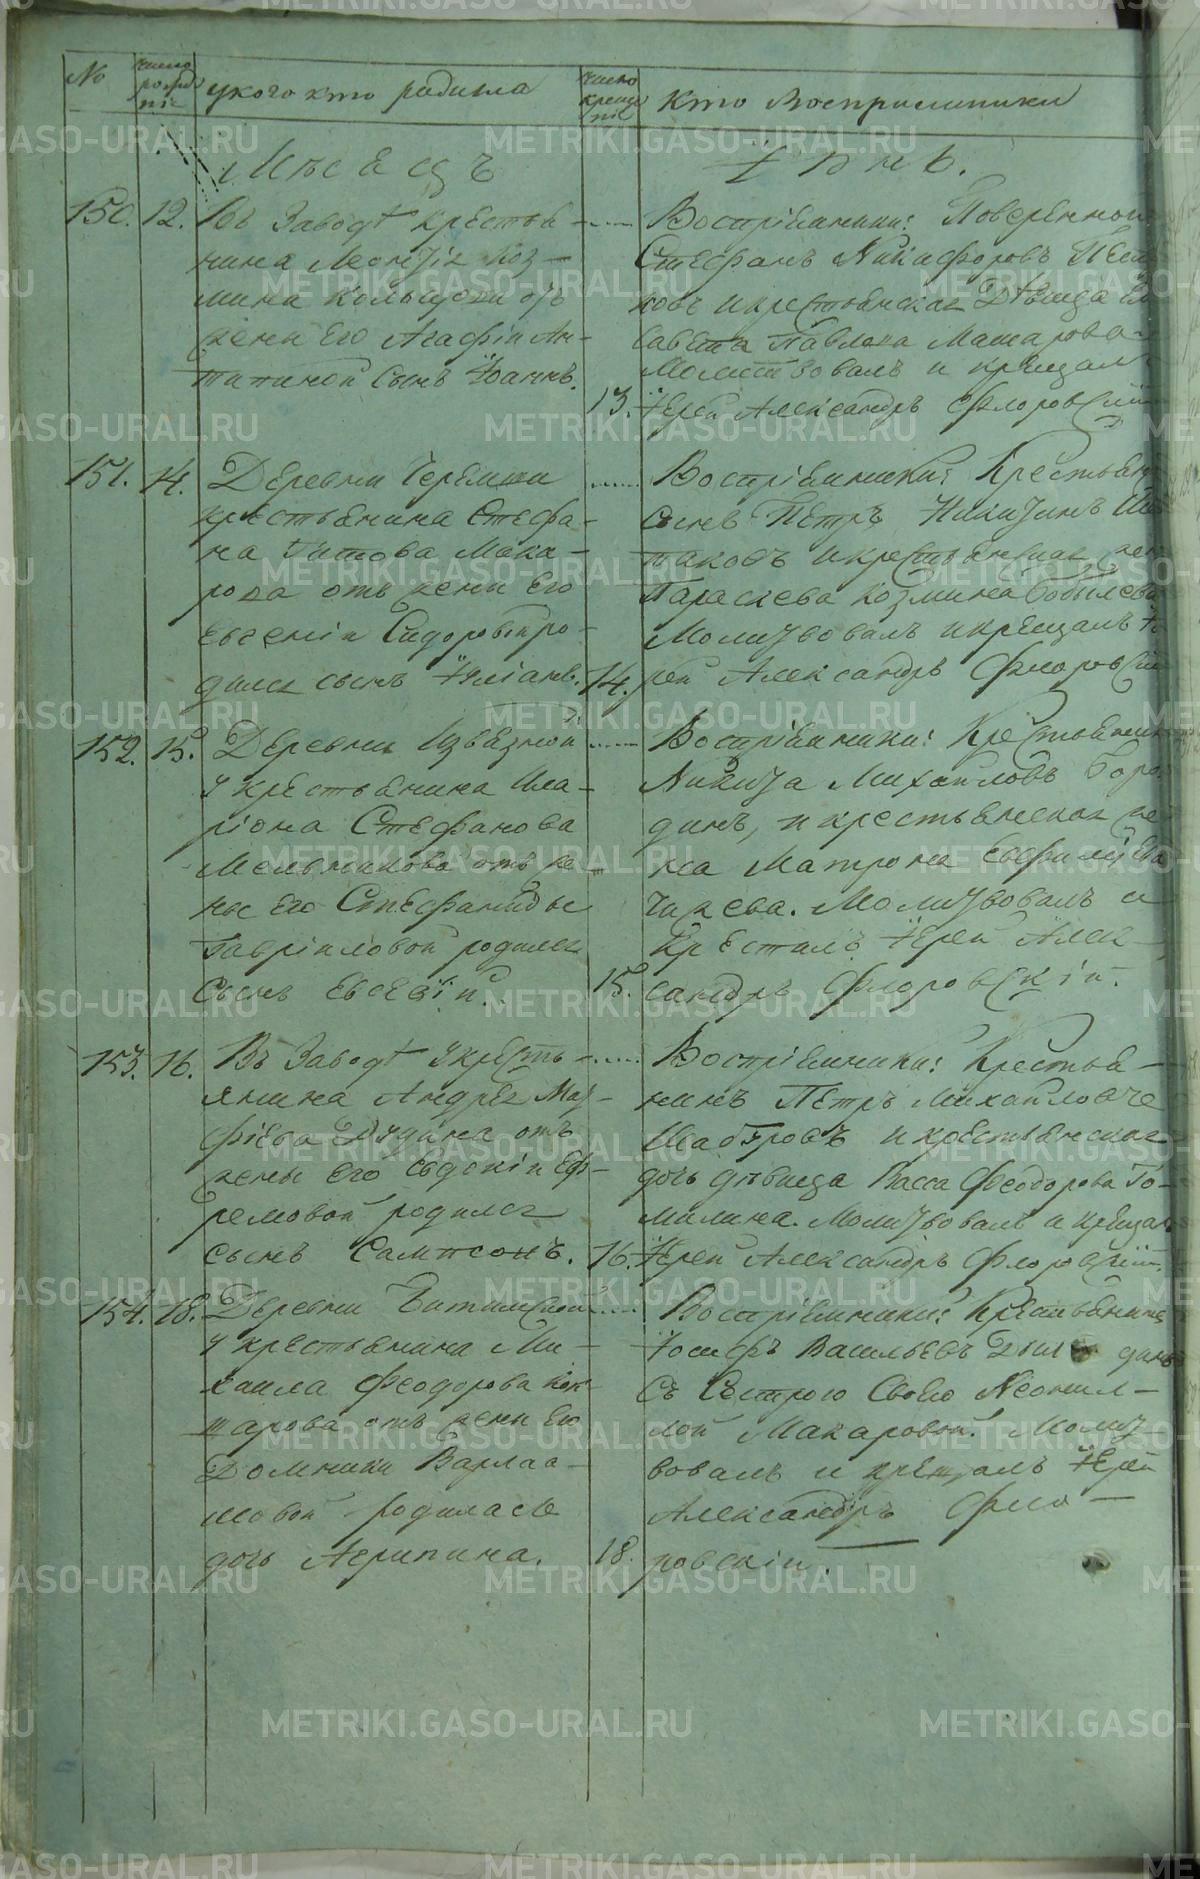 № число рожде нія у кого кто родился число креще нія Кто Восприемники
Мѣсяцъ Іюнь.
150. 12. Въ Заводѣ крестья-
нина Леонтія Коз-
мина отъ
жены его Агафіи Ан-
типиной сынъ Іоаннъ.
Воспріемники: Повѣренной
Стефанъ Никифоровъ
и крестьянская Дѣвица
Павлова
Молитвовалъ и крещалъ
13. Іерей Александръ Флоровскій
151. 14. Деревни Черемши
крестьянина Стефа-
на Титова Мака-
рова отъ жены его
Евгеніи Сидоровой ро-
дился сынъ Іуліанъ.
Воспріемники: Крестьян
сынъ Петръ Никитинъ
и крестьянская жен
Параскева Козмина Бобылева
Молитвовалъ и крещалъ Іе
14. рей Александръ Флоровскій
152. 15. Деревни Извѣзной
у крестьянина Ила-
ріона Стефанова
Мельникова отъ же-
ны его Стефаниды
Гавріиловой родился
сынъ Евсевій.
Воспріемники: Крестьянинъ
Никита Михайловъ Боро
динъ, и крестьянская же
на Матрона
Молитвовалъ и
Крестилъ Іерей Алек-
15. сандръ Флоровскій.
153. 16. Въ Заводѣ у кресть-
янина Андрея Мат-
фіева Дудина отъ
жены его Евдокіи Еф-
ремовой родился
сынъ Сампсонъ.
Воспріемники: Крестья-
нинъ Петръ Михайловъ
и крестьянская
дочь дѣвица Васса Феодорова То-
милина. Молитвовалъ и крещалъ
16. Іерей Александръ Флоровскій.
154. 18. Деревни
у крестьянина Ми-
хаила Феодорова Кок-
шарова отъ жены его
Домники Варлаа-
мовой родилась
дочь Агрипина.
Воспріемники: Крестьянинъ
Іосифъ Васильевъ
съ Сестрою Своею Неонил-
лой Макаровой. Молит-
вовалъ и крещалъ Іерей
Александръ Фло-
18. ровскій.
METRIKI.GASO-URAL.RU